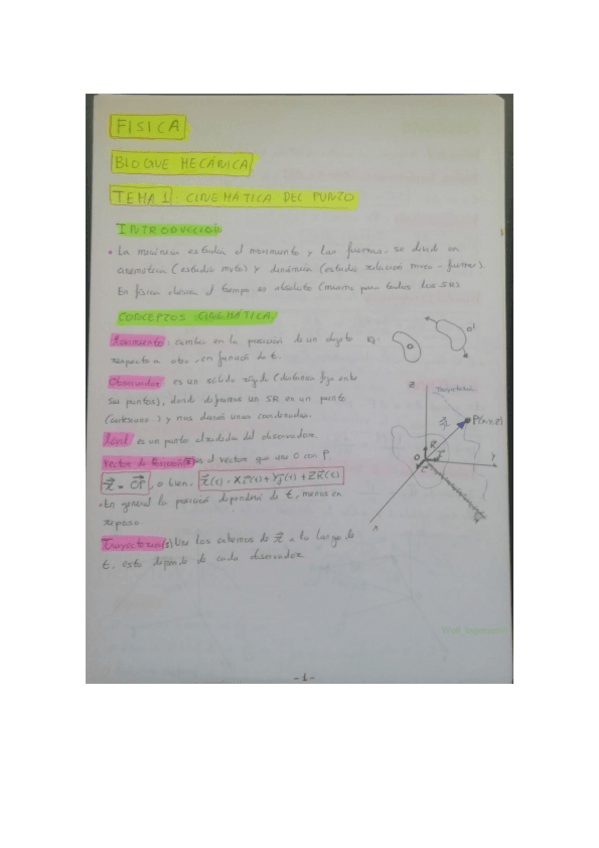 FISICA
BLOQUE MECÁNICA
TEMA 1: CINEMÁTICA DEL PUNTO
INTRODUCCIÓN
• La mecánica estudia el movimiento y las fuerzas. se divide en
cinemática (estudia mvto) y dinámica (estudia relación mvto - fuerzas).
En física clásica el tiempo es absoluto ( para todos los SR)
CONCEPTOS CINEMÁTICA
Movimiento: cambio en la posición de un objeto
respecto a otro, en función de t.
Observador: es un sólido rígido (distancia fija entre
sus puntos), donde definimos un SR en un punto
y nos dará unas coordenadas.
es un punto alrededor del observador.
Vector de Posición es el vector que une O con P
r = OP, o bien, r(t) = Xi(t) + Yj(t) + ZK(t)
• En general la posición dependerá de t, menos en
reposo
Trayectoria: Une los extremos de r a lo largo de
t, esto depende de cada observador.
O
O'
Z
Trayectoria
P(x,y,z)
r
K
O
Y
X
-1-